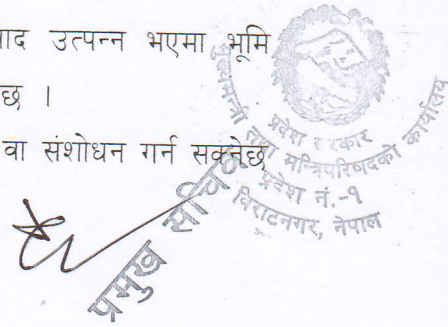 ाद उत्पन्न भएमा भूमि
छ ।
वा संशोधन गर्न सक्नेछ
प्रदेश सरकार
मुख्यमन्त्री तथा मन्त्रिपरिषदको कार्यालय
प्रदेश नं.-१
विराटनगर, नेपाल
प्रमुख सचिव